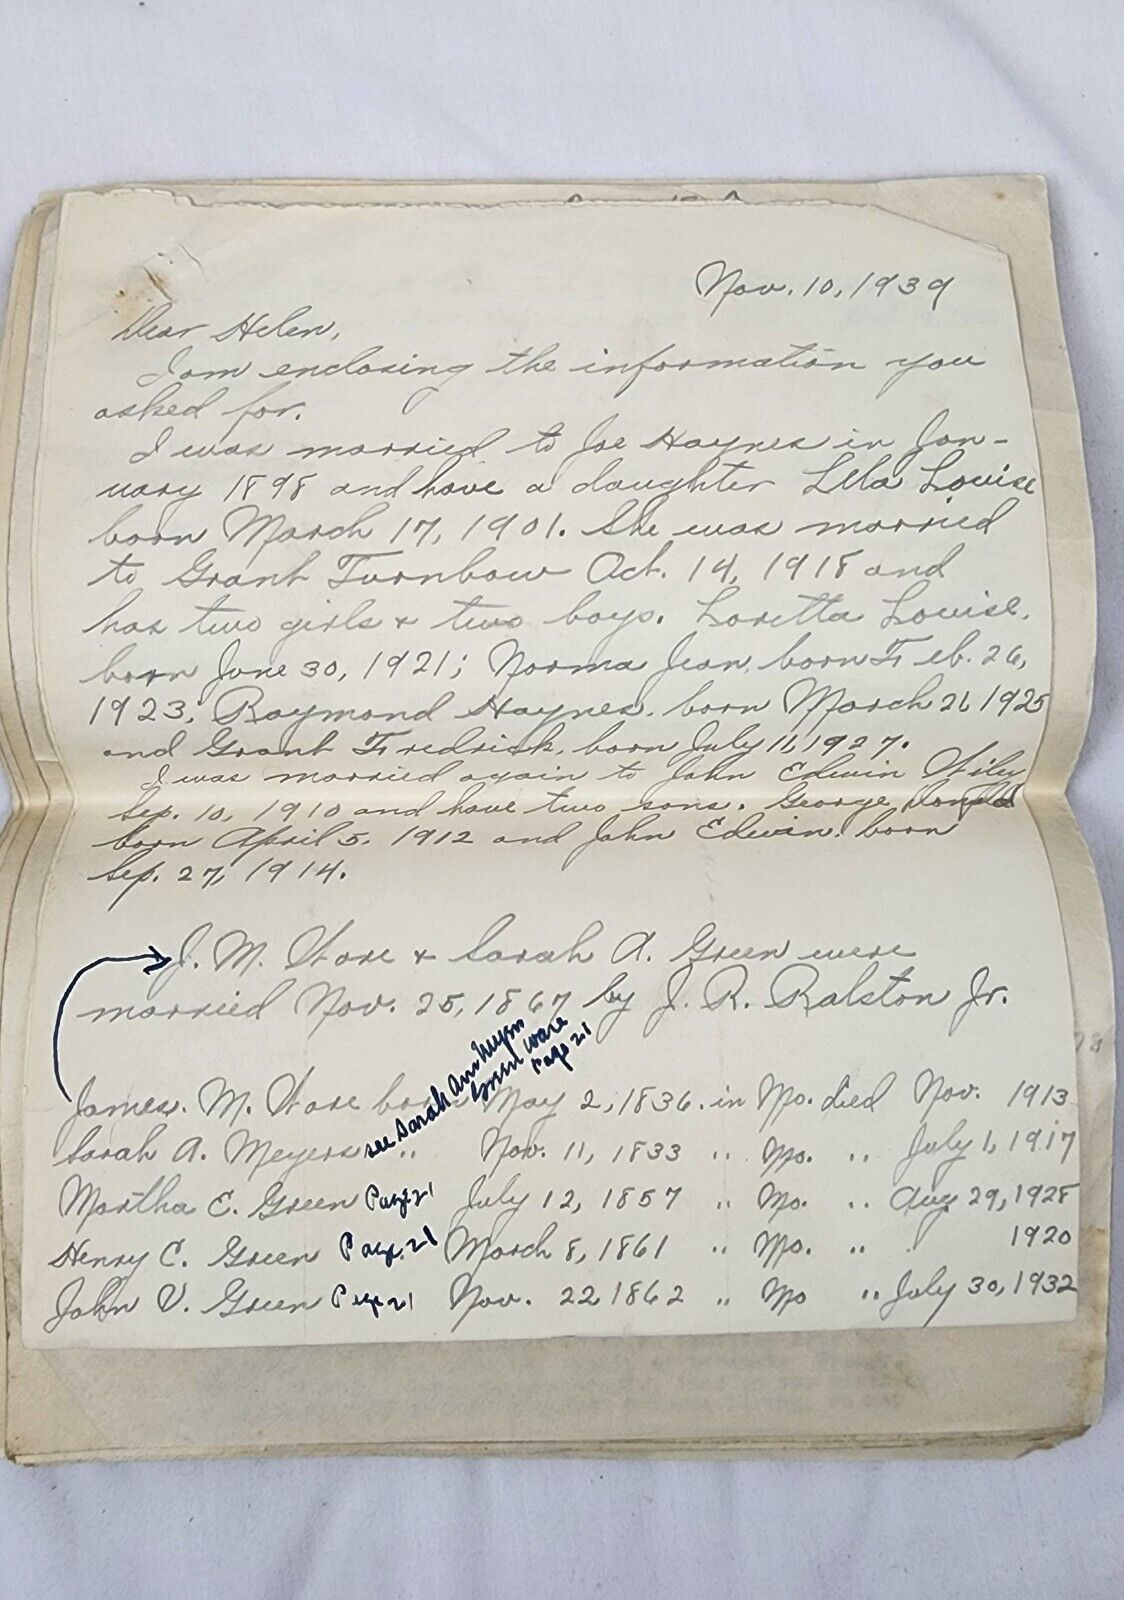 Nov. 10, 1939
Dear Helen,
I am enclosing the information you
asked for.
I was married to Joe Haynes in Jan-
uary 1898 and have a daughter Lela Louise
born March 17, 1901. She was married
to Grant Turnbow Oct. 14, 1918 and
has two girls & two boys. Loretta Louise,
born June 30, 1921; Norma Jean, born Feb. 26,
1923; Raymond Haynes, born March 21 1925
and Grant Fredrick, born July 11, 1927.
I was married again to John Edwin Wiley
Sep. 10, 1910 and have two sons. George Donald
born April 5, 1912 and John Edwin, born
Sep. 27, 1914.
J. M. Ware & Sarah A. Green were
married Nov. 25, 1867 by J. R. Ralston Jr.
see Sarah Ann Meyers
Green Ware
Page 21
James. M. Ware born May 2, 1836. in Mo. died Nov. 1913
Sarah A. Meyers " Nov. 11, 1833 " Mo. " July 1, 1917
Martha E. Green Page 21 July 12, 1857 " Mo. " Aug 29, 1928
Henry C. Green Page 21 March 8, 1861 " Mo. " 1920
John V. Green Page 21 Nov. 22 1862 " Mo " July 30, 1932